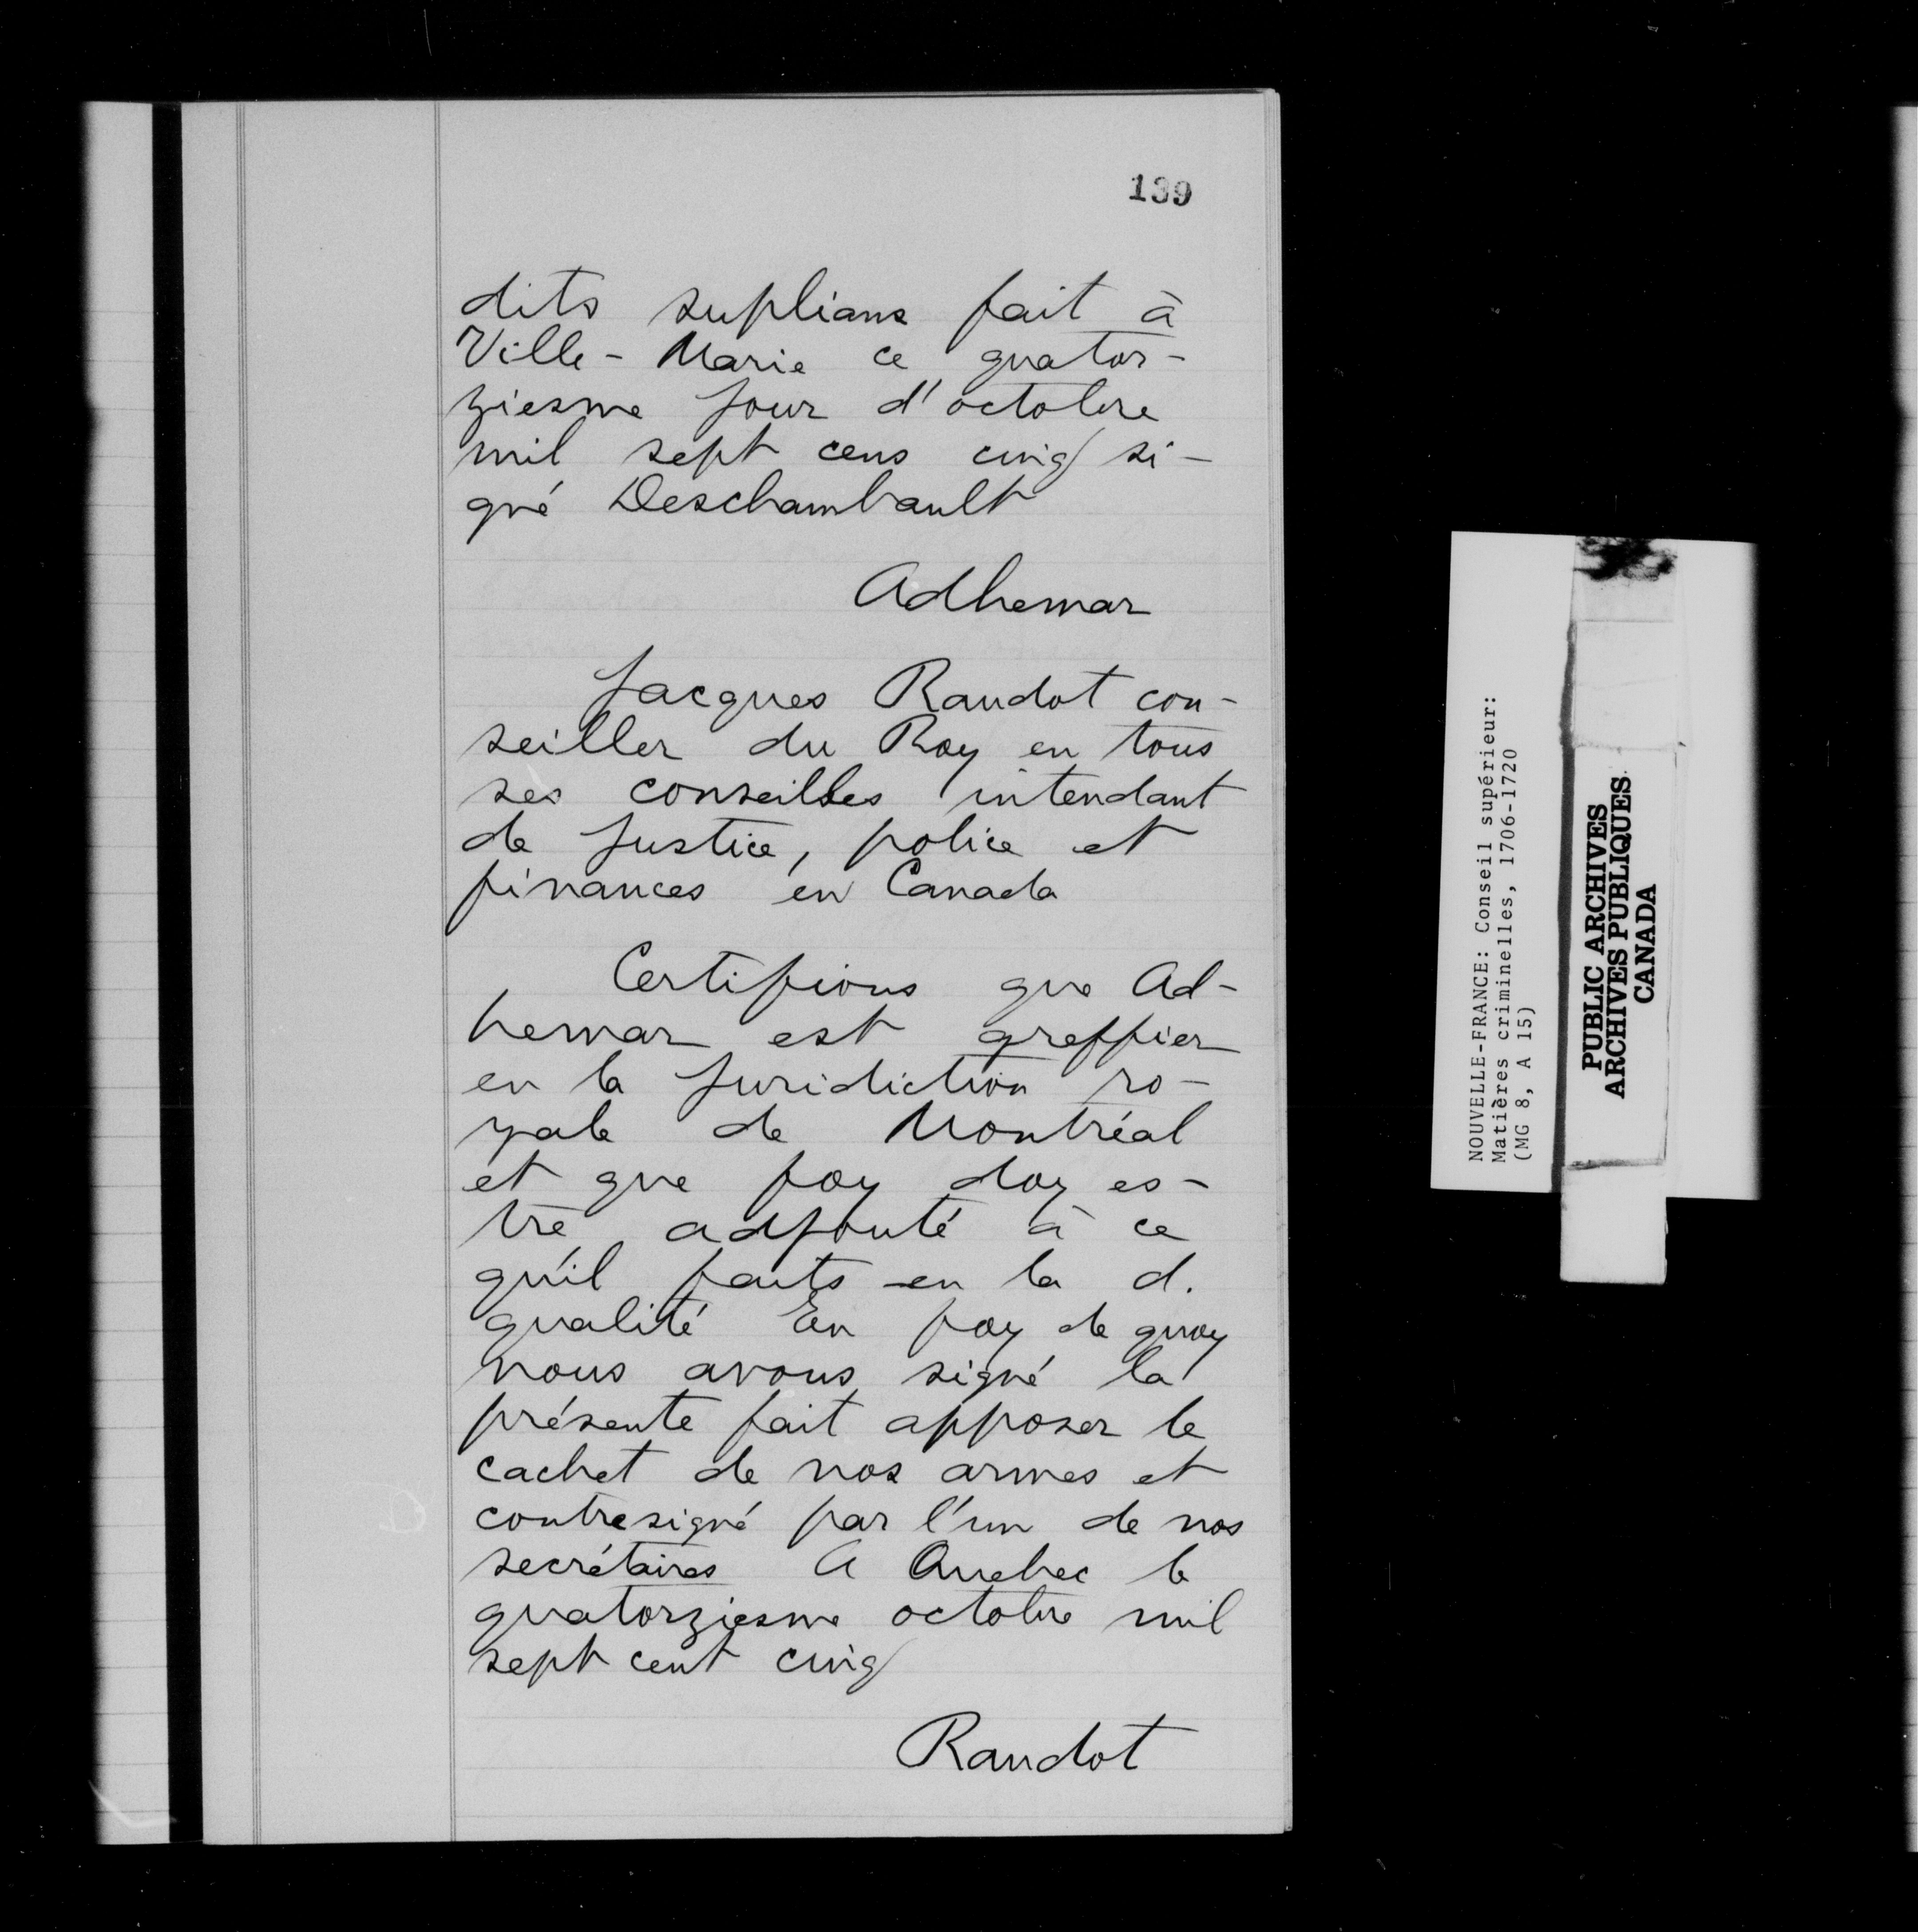 139
dits suplians fait à
Ville-Marie ce quator-
ziesme jour d'octobre
mil sept cens cinq si-
gné Deschambault
Adhemar
Jacques Raudot con-
seiller du Roy en tous
ses conseilles intendant
de justice, police et
finances en Canada
Certifions que Ad-
hemar est greffier
en la juridiction ro-
yale de Montréal
et que foy doy es-
tre adjouté à ce
qu'il faits en la d.
qualité En foy de quoy
nous avons signé la
présente fait apposer le
cachet de nos armes et
contresigné par l'un de nos
secrétaires A Quebec le
quatorziesme octobre mil
sept cent cinq
Raudot
NOUVELLE-FRANCE: Conseil supérieur:
Matières criminelles, 1706-1720
(MG 8, A 15)
PUBLIC ARCHIVES
ARCHIVES PUBLIQUES
CANADA